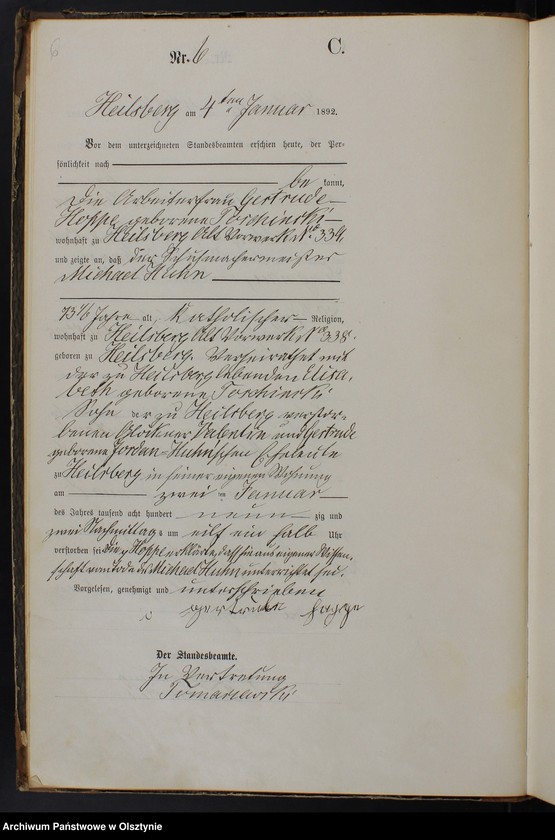 6
Nr. 6
C.
Heilsberg am 4ten Januar 1892.
Vor dem unterzeichneten Standesbeamten erschien heute, der Per-
sönlichkeit nach
be kannt,
die Arbeiterfrau Gertrude
Hoppe geborene Torchinski
wohnhaft zu Heilsberg Alt Vorwerk No 334,
und zeigte an, daß der Schuhmachermeister
Michael Huhn
73 Jahre alt, Katholischer Religion,
wohnhaft zu Heilsberg Alt Vorwerk No 338.
geboren zu Heilsberg. Verheirathet mit
der zu Heilsberg lebenden Elisa,
beth geborene Torchinski
Sohn der zu Heilsberg verstor-
benen Glöckner Valentin und Gertrude
geborene Jordan-Huhn'schen Eheleute
zu Heilsberg in seiner eigenen Wohnung
am zwei ten Januar
des Jahres tausend acht hundert neun zig und
zwei Nachmittags um eilf ein halb Uhr
verstorben sei. Die p Hoppe erklärte, daß sie aus eigener Wissen-
schaft vom Tode des Michael Huhn unterrichtet sei.
Vorgelesen, genehmigt und unterschrieben
gertrude hoppe
Der Standesbeamte.
In Vertretung
Archiwum Państwowe w Olsztynie